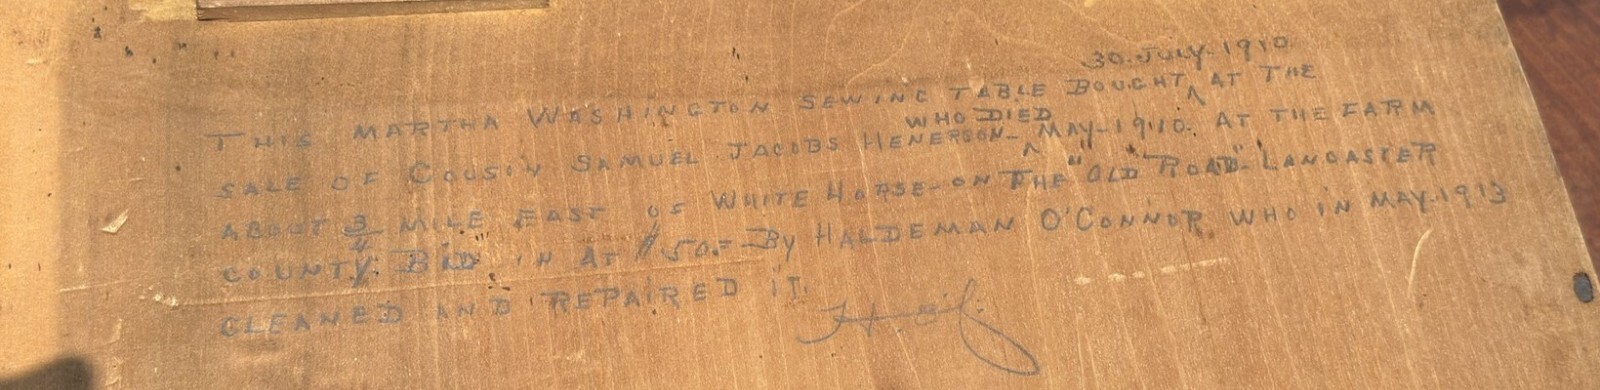 30. JULY-1910.
THIS MARTHA WASHINGTON SEWING TABLE BOUGHT ^ AT THE
WHO DIED
SALE OF COUSIN SAMUEL JACOBS HENERSON- ^ MAY-1910. AT THE FARM
ABOUT 3/4 MILE EAST OF WHITE HORSE-ON THE "OLD ROAD" LANCASTER
COUNTY. BID IN AT $50.= BY HALDEMAN O'CONNOR WHO IN MAY-1913
CLEANED AND REPAIRED IT.